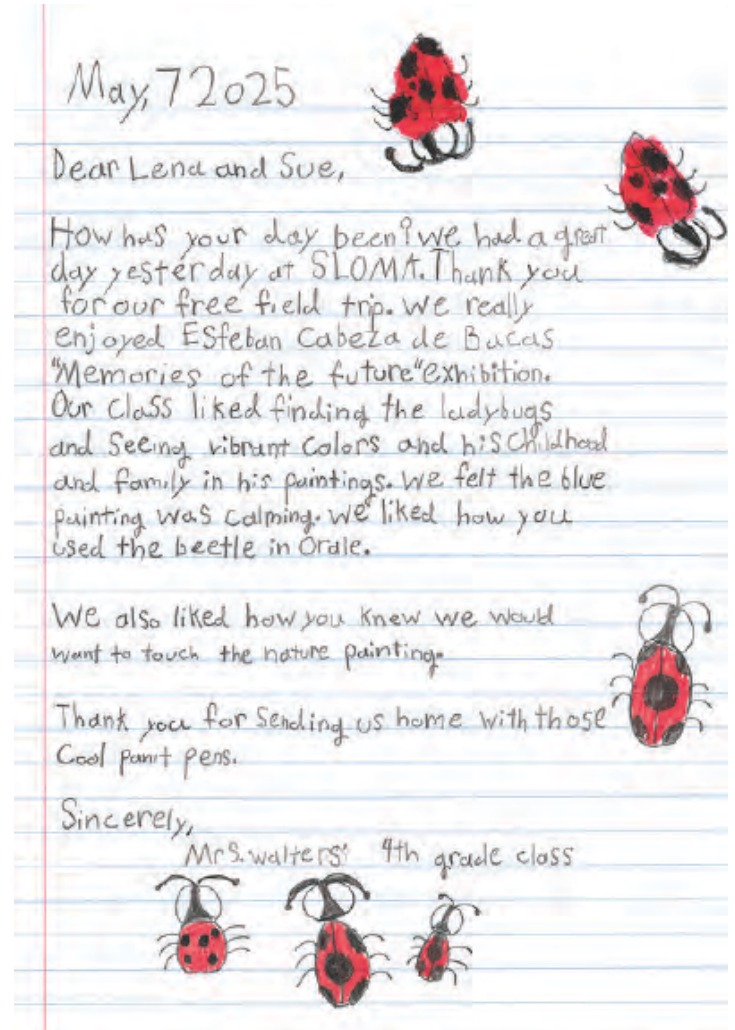 May, 7 2025
Dear Lena and Sue,
How has your day been? we had a great
day yesterday at SLOMA. Thank you
for our free field trip. we really
enjoyed Esteban Cabeza de Bacas
"Memories of the future" exhibition.
Our class liked finding the ladybugs
and Seeing vibrant colors and his childhood
and family in his paintings. we felt the blue
painting was calming. we liked how you
used the beetle in Orale.
We also liked how you knew we would
want to touch the nature painting.
Thank you for Sending us home with those
Cool panit pens.
Sincerely,
Mrs. walters' 4th grade class